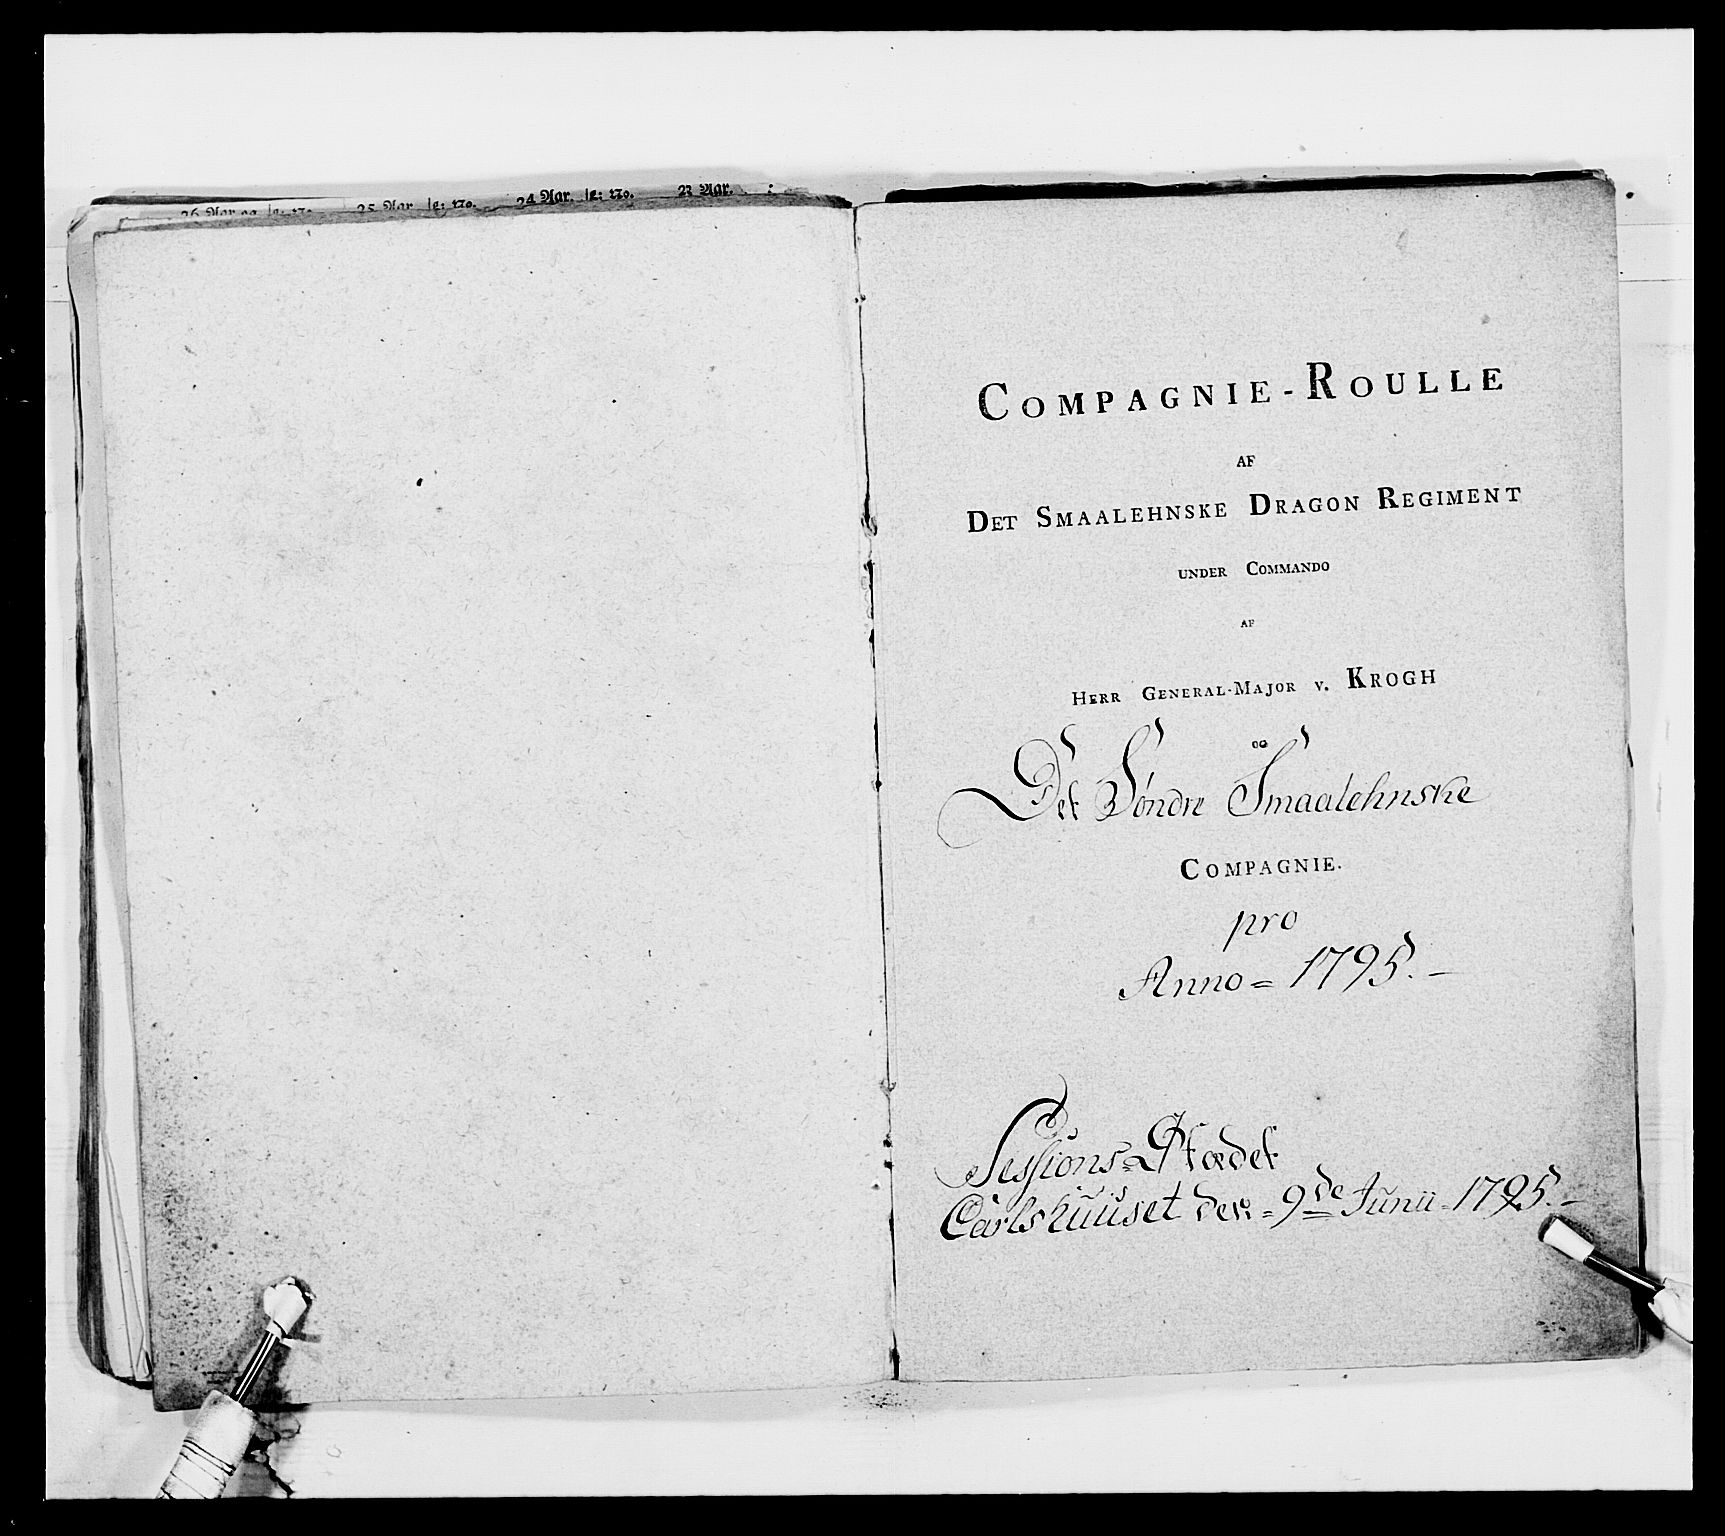 26 Aar og
25 Aar
24 Aar. No.
23 Aar.
COMPAGNIE-ROULLE
AF
DET SMAALEHNSKE DRAGON REGIMENT
UNDER COMMANDO
AF
HERR GENERAL-MAJOR V. KROGH
OG
Det Søndre Smaalehnske
COMPAGNIE.
pro
Anno = 1795. –
Sessions-Stædet
Carlshuuset den = 9de Junii - 1795. –